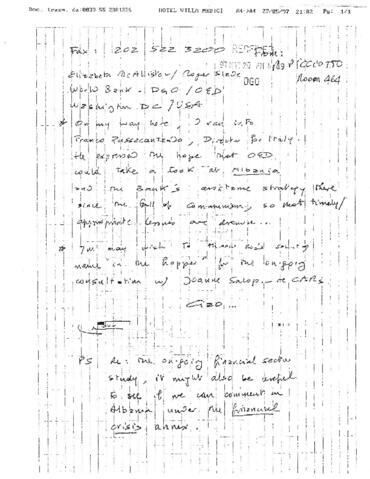 HOTEL VILLA MEDICI 27/05/97 21:02 Pg: 1/1
Fax: 202 522 3200 From:
PICCIOTTO
Elizabeth McAllister / Roger Slade DGO Room 464
World Bank - DGO / OED
Washington DC / USA
* On my way here, I ran into
Franco Passacantando, Director for Italy.
He expressed the hope that OED
could take a look at Albania
and the Bank's assistance strategy there
since the fall of communism, so that timely /
appropriate lessons are drawn...
* may wish to this country
name "in the hopper" for the on-going
consultation w/ Joanne Salop - re CARs
Ciao...
PS Re: the on-going financial sector
study, it might also be useful
to see if we can comment on
Albania under the financial
crisis annex.